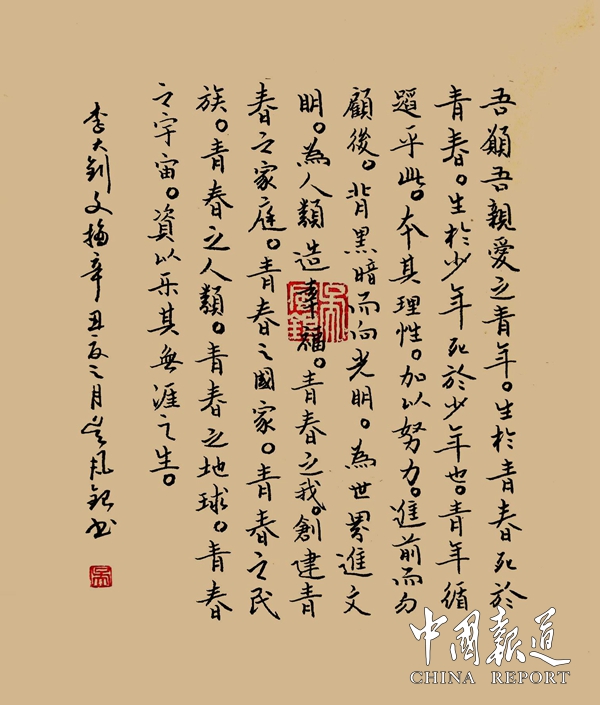 吾願吾親愛之青年。生於青春死於
青春。生於少年死於少年也。青年循
蹈乎此。本其理性。加以努力。進前而勿
顧後。背黑暗而向光明。為世界進文
明。為人類造幸福。青春之我。創建青
春之家庭。青春之國家。青春之民
族。青春之人類。青春之地球。青春
之宇宙。資以乐其無涯之生。
李大釗文摘辛丑之月吴書
吴
中國報道
CHINA REPORT